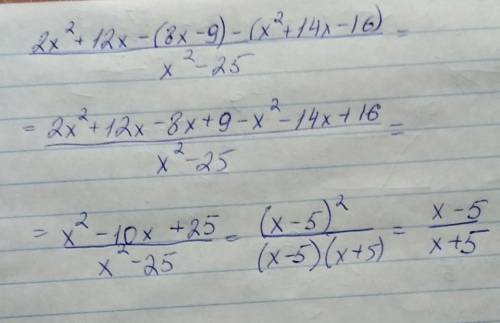 2x² + 12x - (8x - 9) - (x² + 14x - 16) =
x² - 25
= 2x² + 12x - 8x + 9 - x² - 14x + 16 =
x² - 25
= x² - 10x + 25 = (x - 5)² = x - 5
x² - 25 (x - 5)(x + 5) x + 5